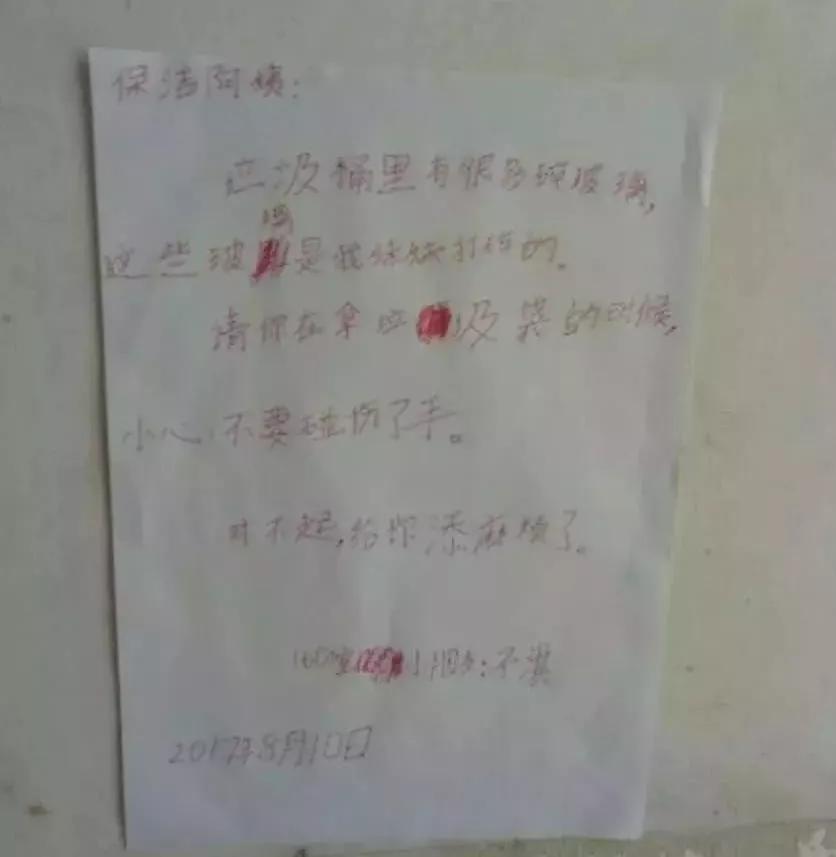 保洁阿姨:
垃圾桶里有很多碎玻璃,
这些玻璃是我妹妹打碎的。
请你在拿垃圾袋的时候,
小心,不要碰伤了手。
对不起,给你添麻烦了。
小朋友:不淇
2017年8月10日